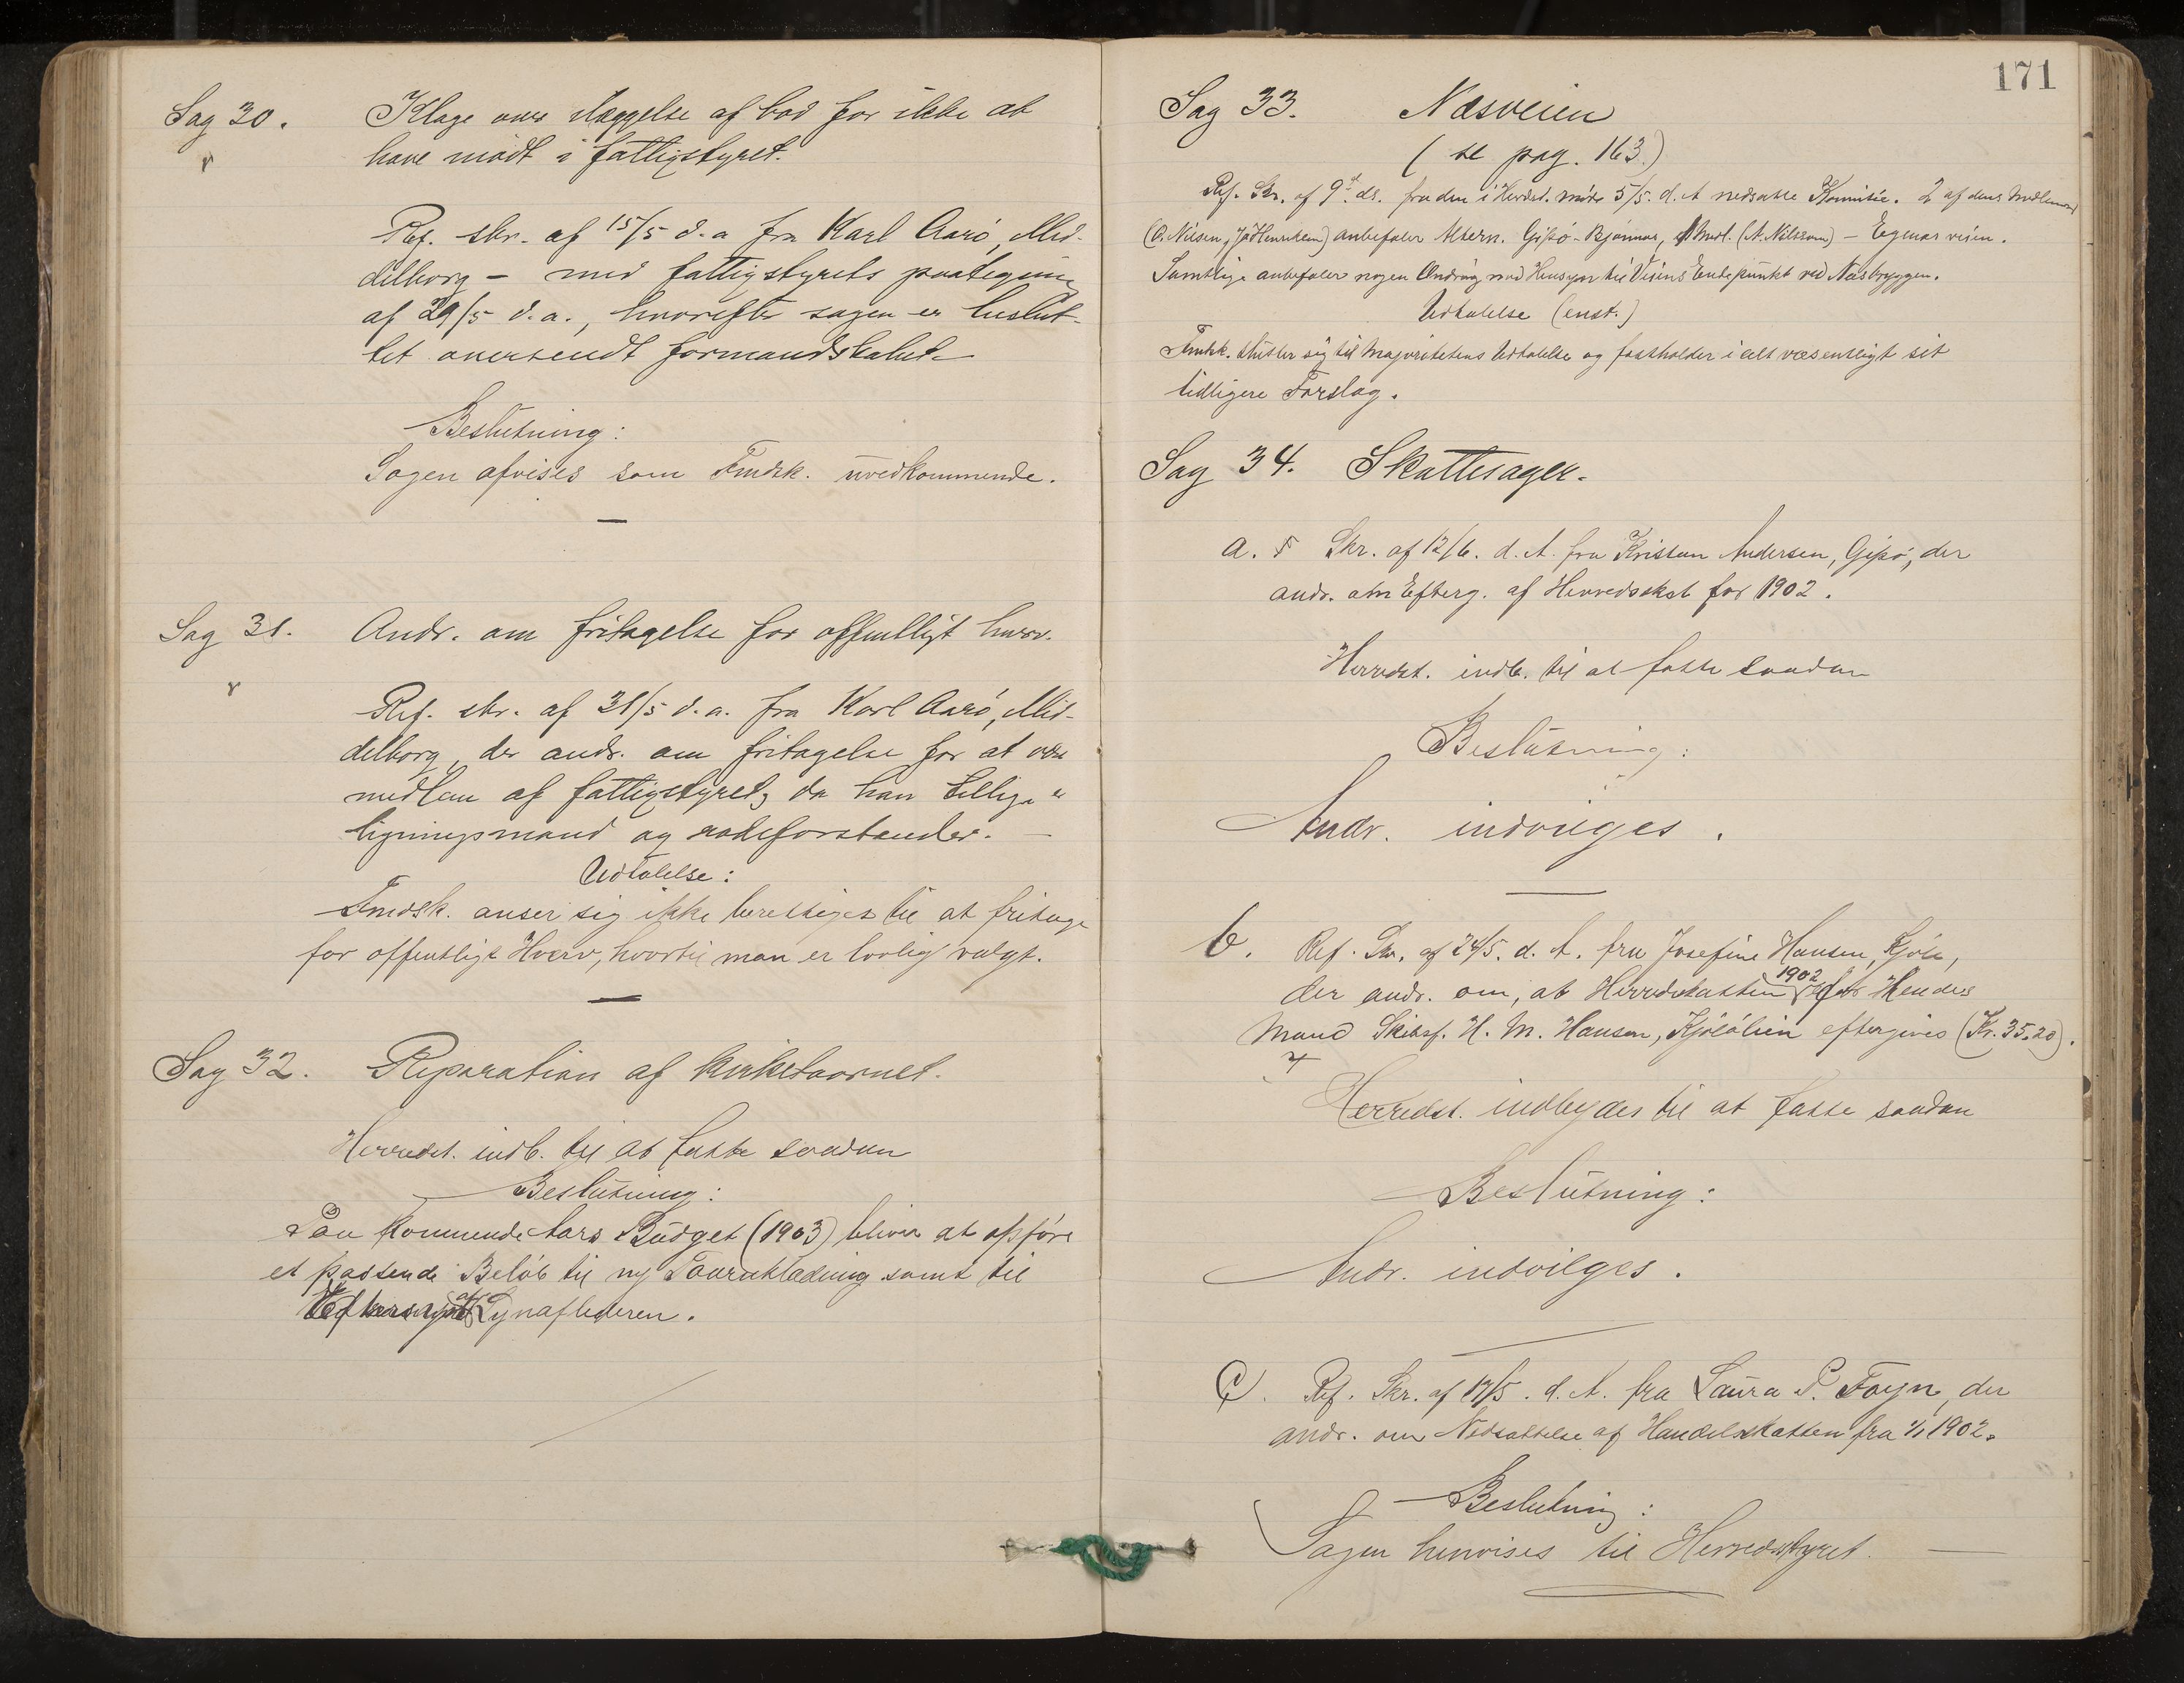 Sag 30. Klage over ilæggelse af bod for ikke at
have mödt i fattigstyret.
Ref. skr. af 15/5 d.a fra Karl Aarö, Mid-
delborg - med fattigstyrets paategning
af 29/5 d.a., hvorefter sagen er beslut-
tet oversendt formandskabet
Beslutning:
Sagen afvises som Fmdsk. uvedkommende.
Sag 31. Andr. om fritagelse for offentligt hverv.
Ref. skr. af 31/5 d.a. fra Karl Aarö, Mid-
delborg, der andr. om fritagelse for at være
medlem af fattigstyret, da han tillige er
ligningsmand og rodeforstander. -
Udtalelse:
Fmdsk. anser sig ikke berettiget til at fritage
for offentligt Hverv, hvortil man er lovlig valgt.
Sag 32. Reparation af kirketaarnet.
Herredst. indb. til at fatte saadan
Beslutning:
Paa kommende Aars Budget (1903) bliver at opföre
et passende Belöb til ny Taarnklædning samt til
af Lynaflederen.
171
Sag 33. Næsveien
(se pag. 163)
Ref. Skr. af 9d. ds. fra den i Herdst. möde 5/5. d. A nedsatte Komitée. 2 af dens Medlemmer
(O. Nilsen, ) anbefaler Altern. Gipö-Bjönnes, 1 Medl. (A. Nilsson) - veien.
Samtlige anbefaler nogen Ændring med Hensyn til Veiens Endepunkt ved Næsbryggen.
Udtalelse (enst.)
Fmdsk. slutter sig til Majoritetens Udtalelse og fastholder i alt væsentligt sit
tidligere Forslag.
Sag 34. Skattesager.
a. Skr. af 12/6. d. A. fra Kristian Andersen, Gipö, der
andr. om Efterg. af Herredsskat for 1902.
Herredst. indb. til at fatte saadan
Beslutning:
Andr. indvilges.
b. Ref. Skr. af 24/5. d. A. fra Josefine Hansen, Kjöle,
der andr. om, at Herredsskatten 1902 for Hendes
Mand Skibsf. H. M. Hansen, eftergives (Kr. 35.20).
Herredst. indbydes til at fatte saadan
Beslutning:
Andr. indvilges.
C. Ref. Skr. af 17/5. d. A. fra Laura P. Foyn, der
andr. om Nedsættelse af Handelsskatten fra 1/1 1902.
Beslutning:
Sagen henvises til Herredsstyret. -